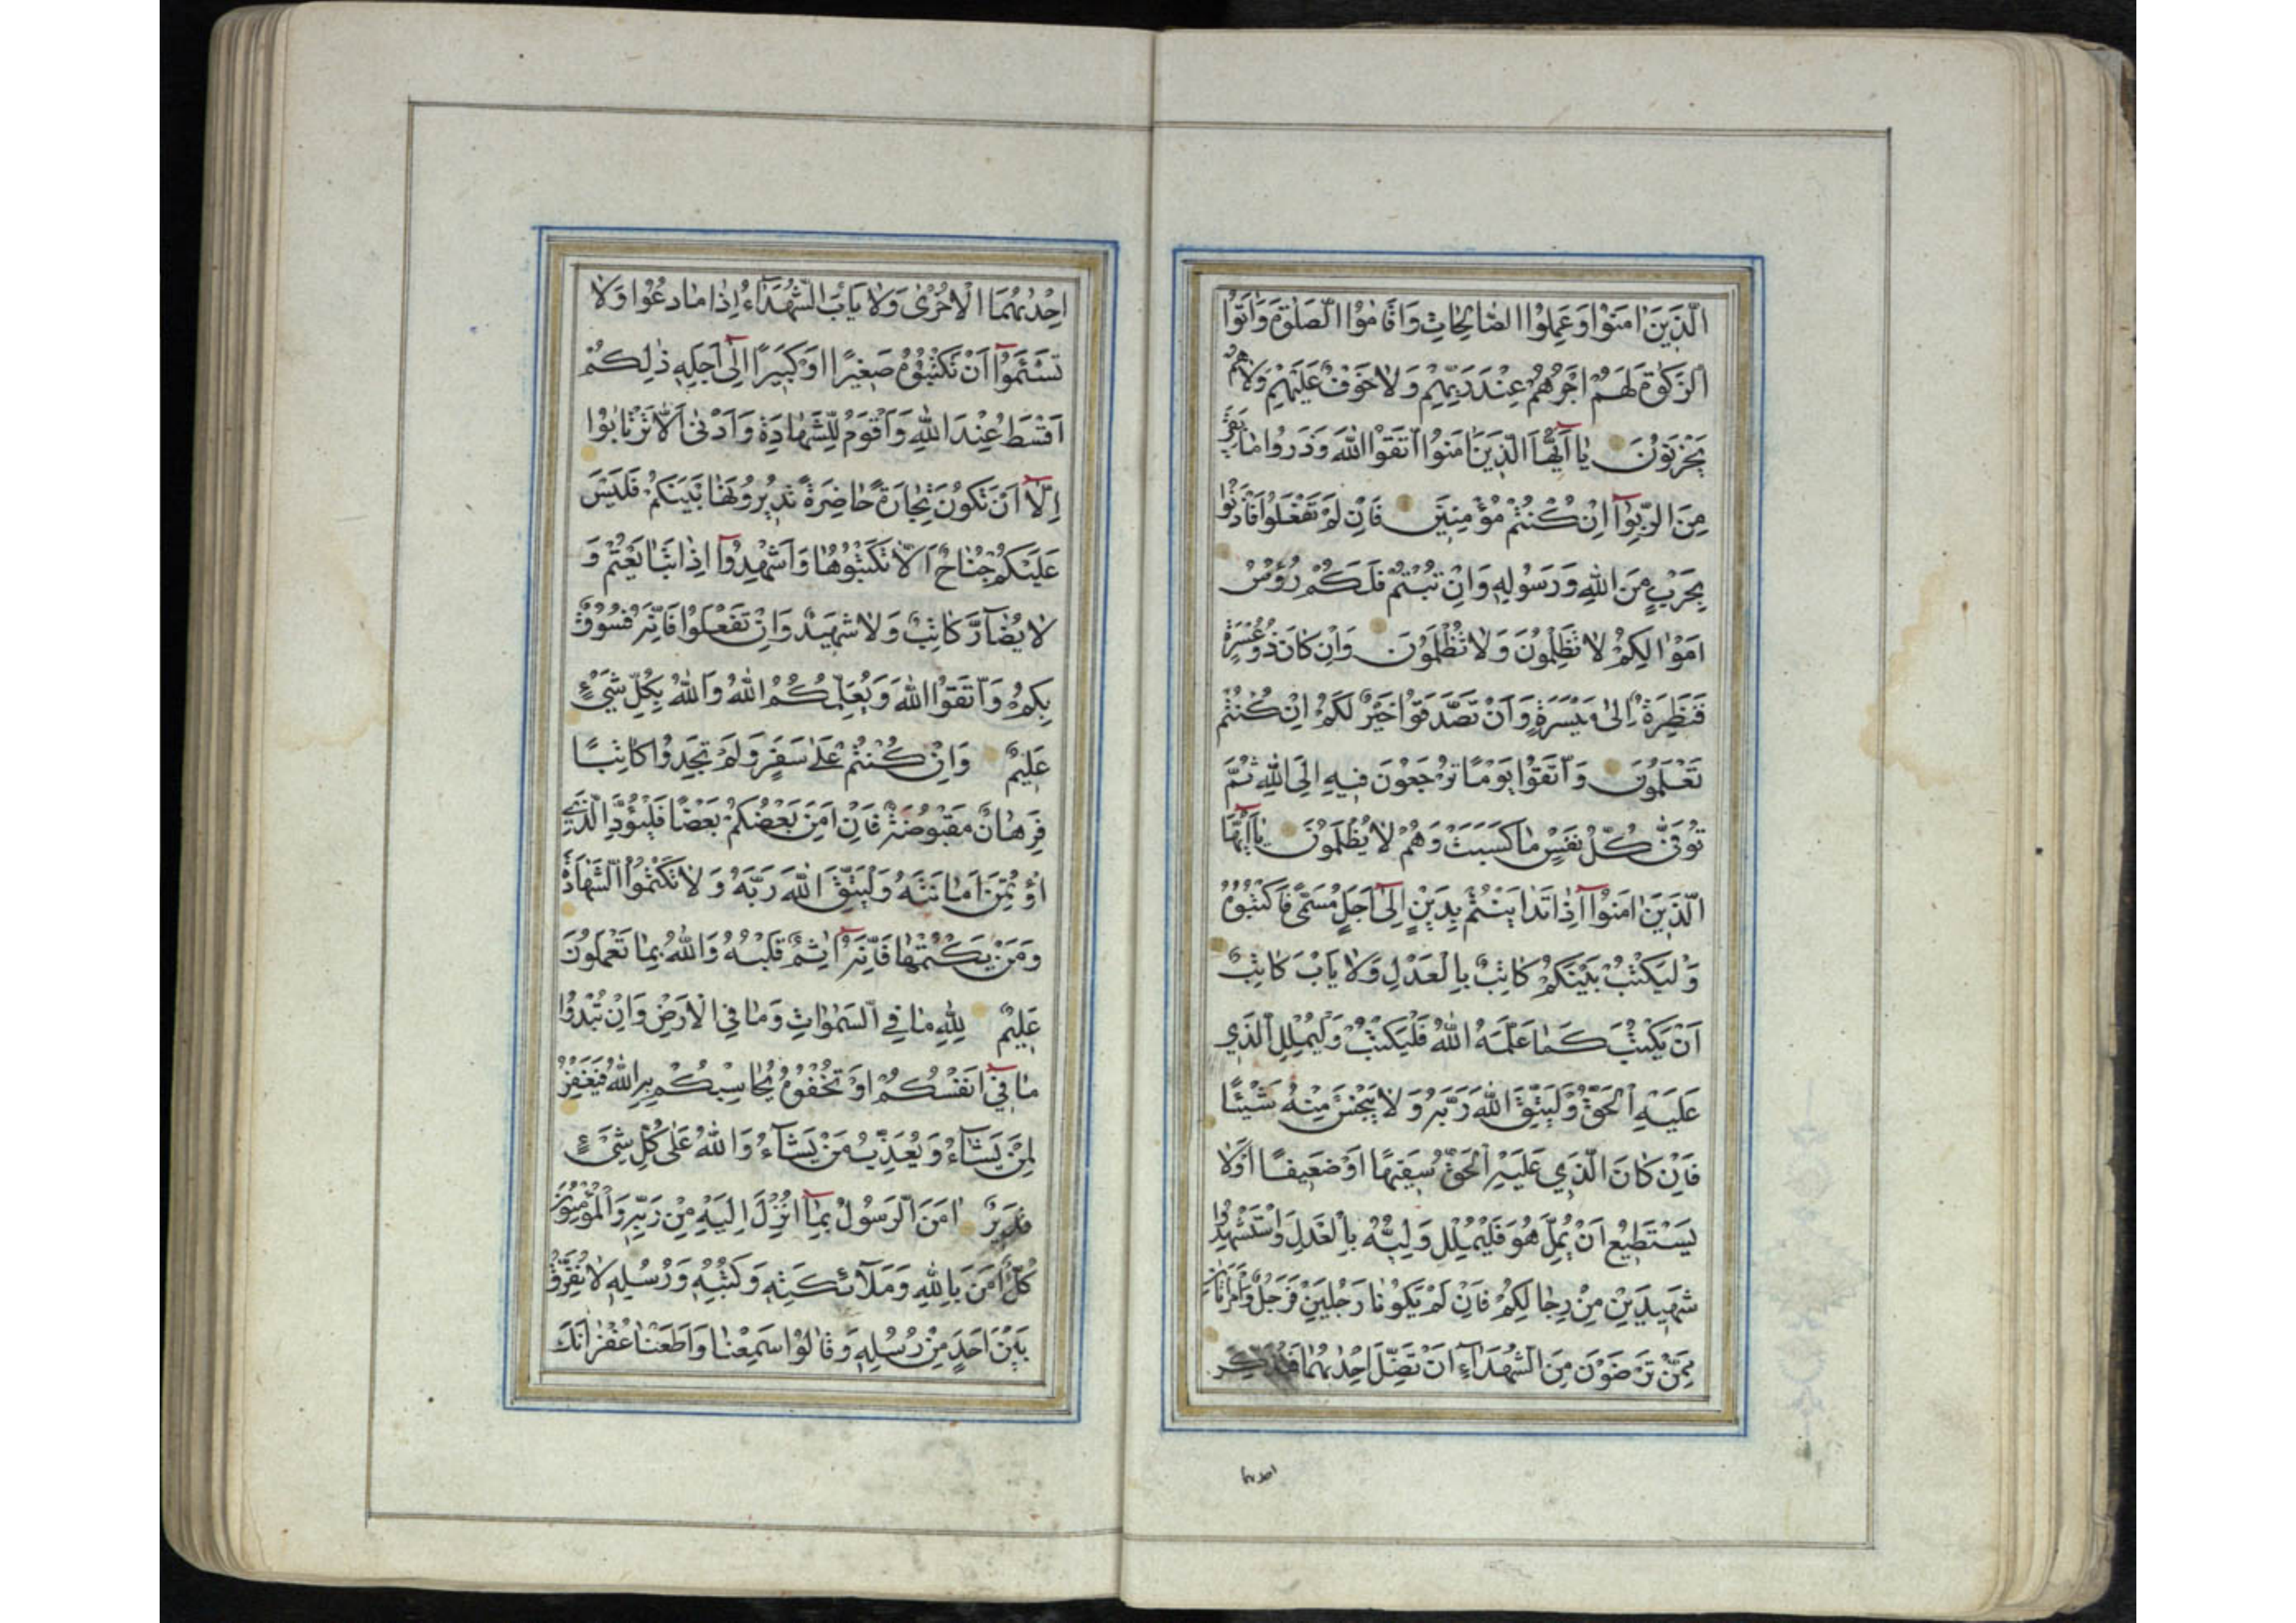 الَّذِينَ اٰمَنُوا وَعَمِلُوا الصَّالِحَاتِ وَاَقَامُوا الصَّلٰوةَ وَاٰتَوُا
الزَّكٰوةَ لَهُمْ اَجْرُهُمْ عِنْدَ رَبِّهِمْ وَلَا خَوْفٌ عَلَيْهِمْ وَلَا هُمْ
يَحْزَنُونَ يَا اَيُّهَا الَّذِينَ اٰمَنُوا اتَّقُوا اللّٰهَ وَذَرُوا مَا بَقِيَ
مِنَ الرِّبٰوا اِنْ كُنْتُمْ مُؤْمِنِينَ فَاِنْ لَمْ تَفْعَلُوا فَأْذَنُوا
بِحَرْبٍ مِنَ اللّٰهِ وَرَسُولِهِ وَاِنْ تُبْتُمْ فَلَكُمْ رُؤُسُ
اَمْوَالِكُمْ لَا تَظْلِمُونَ وَلَا تُظْلَمُونَ وَاِنْ كَانَ ذُو عُسْرَةٍ
فَنَظِرَةٌ اِلٰى مَيْسَرَةٍ وَاَنْ تَصَّدَّقُوا خَيْرٌ لَكُمْ اِنْ كُنْتُمْ
تَعْلَمُونَ وَاتَّقُوا يَوْمًا تُرْجَعُونَ فِيهِ اِلَى اللّٰهِ ثُمَّ
تُوَفّٰى كُلُّ نَفْسٍ مَا كَسَبَتْ وَهُمْ لَا يُظْلَمُونَ يَا اَيُّهَا
الَّذِينَ اٰمَنُوا اِذَا تَدَايَنْتُمْ بِدَيْنٍ اِلٰى اَجَلٍ مُسَمًّى فَاكْتُبُوهُ
وَلْيَكْتُبْ بَيْنَكُمْ كَاتِبٌ بِالْعَدْلِ وَلَا يَأْبَ كَاتِبٌ
اَنْ يَكْتُبَ كَمَا عَلَّمَهُ اللّٰهُ فَلْيَكْتُبْ وَلْيُمْلِلِ الَّذِي
عَلَيْهِ الْحَقُّ وَلْيَتَّقِ اللّٰهَ رَبَّهُ وَلَا يَبْخَسْ مِنْهُ شَيْئًا
فَاِنْ كَانَ الَّذِي عَلَيْهِ الْحَقُّ سَفِيهًا اَوْ ضَعِيفًا اَوْ لَا
يَسْتَطِيعُ اَنْ يُمِلَّ هُوَ فَلْيُمْلِلْ وَلِيُّهُ بِالْعَدْلِ وَاسْتَشْهِدُوا
شَهِيدَيْنِ مِنْ رِجَالِكُمْ فَاِنْ لَمْ يَكُونَا رَجُلَيْنِ فَرَجُلٌ وَامْرَاَتَانِ
مِمَّنْ تَرْضَوْنَ مِنَ الشُّهَدَاءِ اَنْ تَضِلَّ اِحْدٰىهُمَا فَتُذَكِّرَ
احدیهما
اِحْدٰىهُمَا الْاُخْرٰى وَلَا يَأْبَ الشُّهَدَاءُ اِذَا مَا دُعُوا وَلَا
تَسْئَمُوا اَنْ تَكْتُبُوهُ صَغِيرًا اَوْ كَبِيرًا اِلٰى اَجَلِهِ ذٰلِكُمْ
اَقْسَطُ عِنْدَ اللّٰهِ وَاَقْوَمُ لِلشَّهَادَةِ وَاَدْنٰى اَلَّا تَرْتَابُوا
اِلَّا اَنْ تَكُونَ تِجَارَةً حَاضِرَةً تُدِيرُونَهَا بَيْنَكُمْ فَلَيْسَ
عَلَيْكُمْ جُنَاحٌ اَلَّا تَكْتُبُوهَا وَاَشْهِدُوا اِذَا تَبَايَعْتُمْ وَ
لَا يُضَارَّ كَاتِبٌ وَلَا شَهِيدٌ وَاِنْ تَفْعَلُوا فَاِنَّهُ فُسُوقٌ
بِكُمْ وَاتَّقُوا اللّٰهَ وَيُعَلِّمُكُمُ اللّٰهُ وَاللّٰهُ بِكُلِّ شَيْءٍ
عَلِيمٌ وَاِنْ كُنْتُمْ عَلٰى سَفَرٍ وَلَمْ تَجِدُوا كَاتِبًا
فَرِهَانٌ مَقْبُوضَةٌ فَاِنْ اَمِنَ بَعْضُكُمْ بَعْضًا فَلْيُؤَدِّ الَّذِي
اؤْتُمِنَ اَمَانَتَهُ وَلْيَتَّقِ اللّٰهَ رَبَّهُ وَلَا تَكْتُمُوا الشَّهَادَةَ
وَمَنْ يَكْتُمْهَا فَاِنَّهُ اٰثِمٌ قَلْبُهُ وَاللّٰهُ بِمَا تَعْمَلُونَ
عَلِيمٌ لِلّٰهِ مَا فِي السَّمٰوَاتِ وَمَا فِي الْاَرْضِ وَاِنْ تُبْدُوا
مَا فِي اَنْفُسِكُمْ اَوْ تُخْفُوهُ يُحَاسِبْكُمْ بِهِ اللّٰهُ فَيَغْفِرُ
لِمَنْ يَشَاءُ وَيُعَذِّبُ مَنْ يَشَاءُ وَاللّٰهُ عَلٰى كُلِّ شَيْءٍ
قَدِيرٌ اٰمَنَ الرَّسُولُ بِمَا اُنْزِلَ اِلَيْهِ مِنْ رَبِّهِ وَالْمُؤْمِنُونَ
كُلٌّ اٰمَنَ بِاللّٰهِ وَمَلَائِكَتِهِ وَكُتُبِهِ وَرُسُلِهِ لَا نُفَرِّقُ
بَيْنَ اَحَدٍ مِنْ رُسُلِهِ وَقَالُوا سَمِعْنَا وَاَطَعْنَا غُفْرَانَكَ